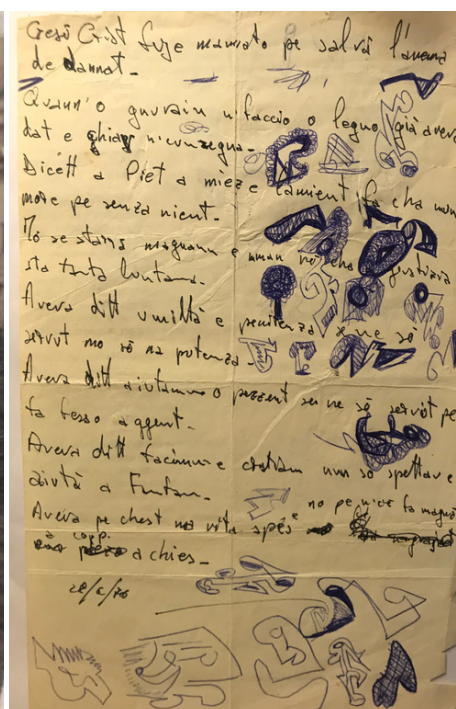 Gesù Crist fuje mannato pe salvà l'anema
de dannat.
Quann' o 'nfaccio o legno già aveva
dat e chiav 'n cunzegna.
Dicett a Piet a miez e lamient fa cha nun
more pe senza nient.
Mo se stann magnann e man ne cha giustizia
sta tanta luntana.
Aveva ditt umiltà e penitenza se ne sò
servut mo sò na putenza.
Aveva ditt aiutamm o pezzent se ne sò servut pe
fa fesso a ggent.
Aveva ditt facimm e cristian nun so spettav e
aiutà a Funtan.
no pe nce fa magnà
Aveva pe chest na vita spes
a copp a chies.
28/6/76